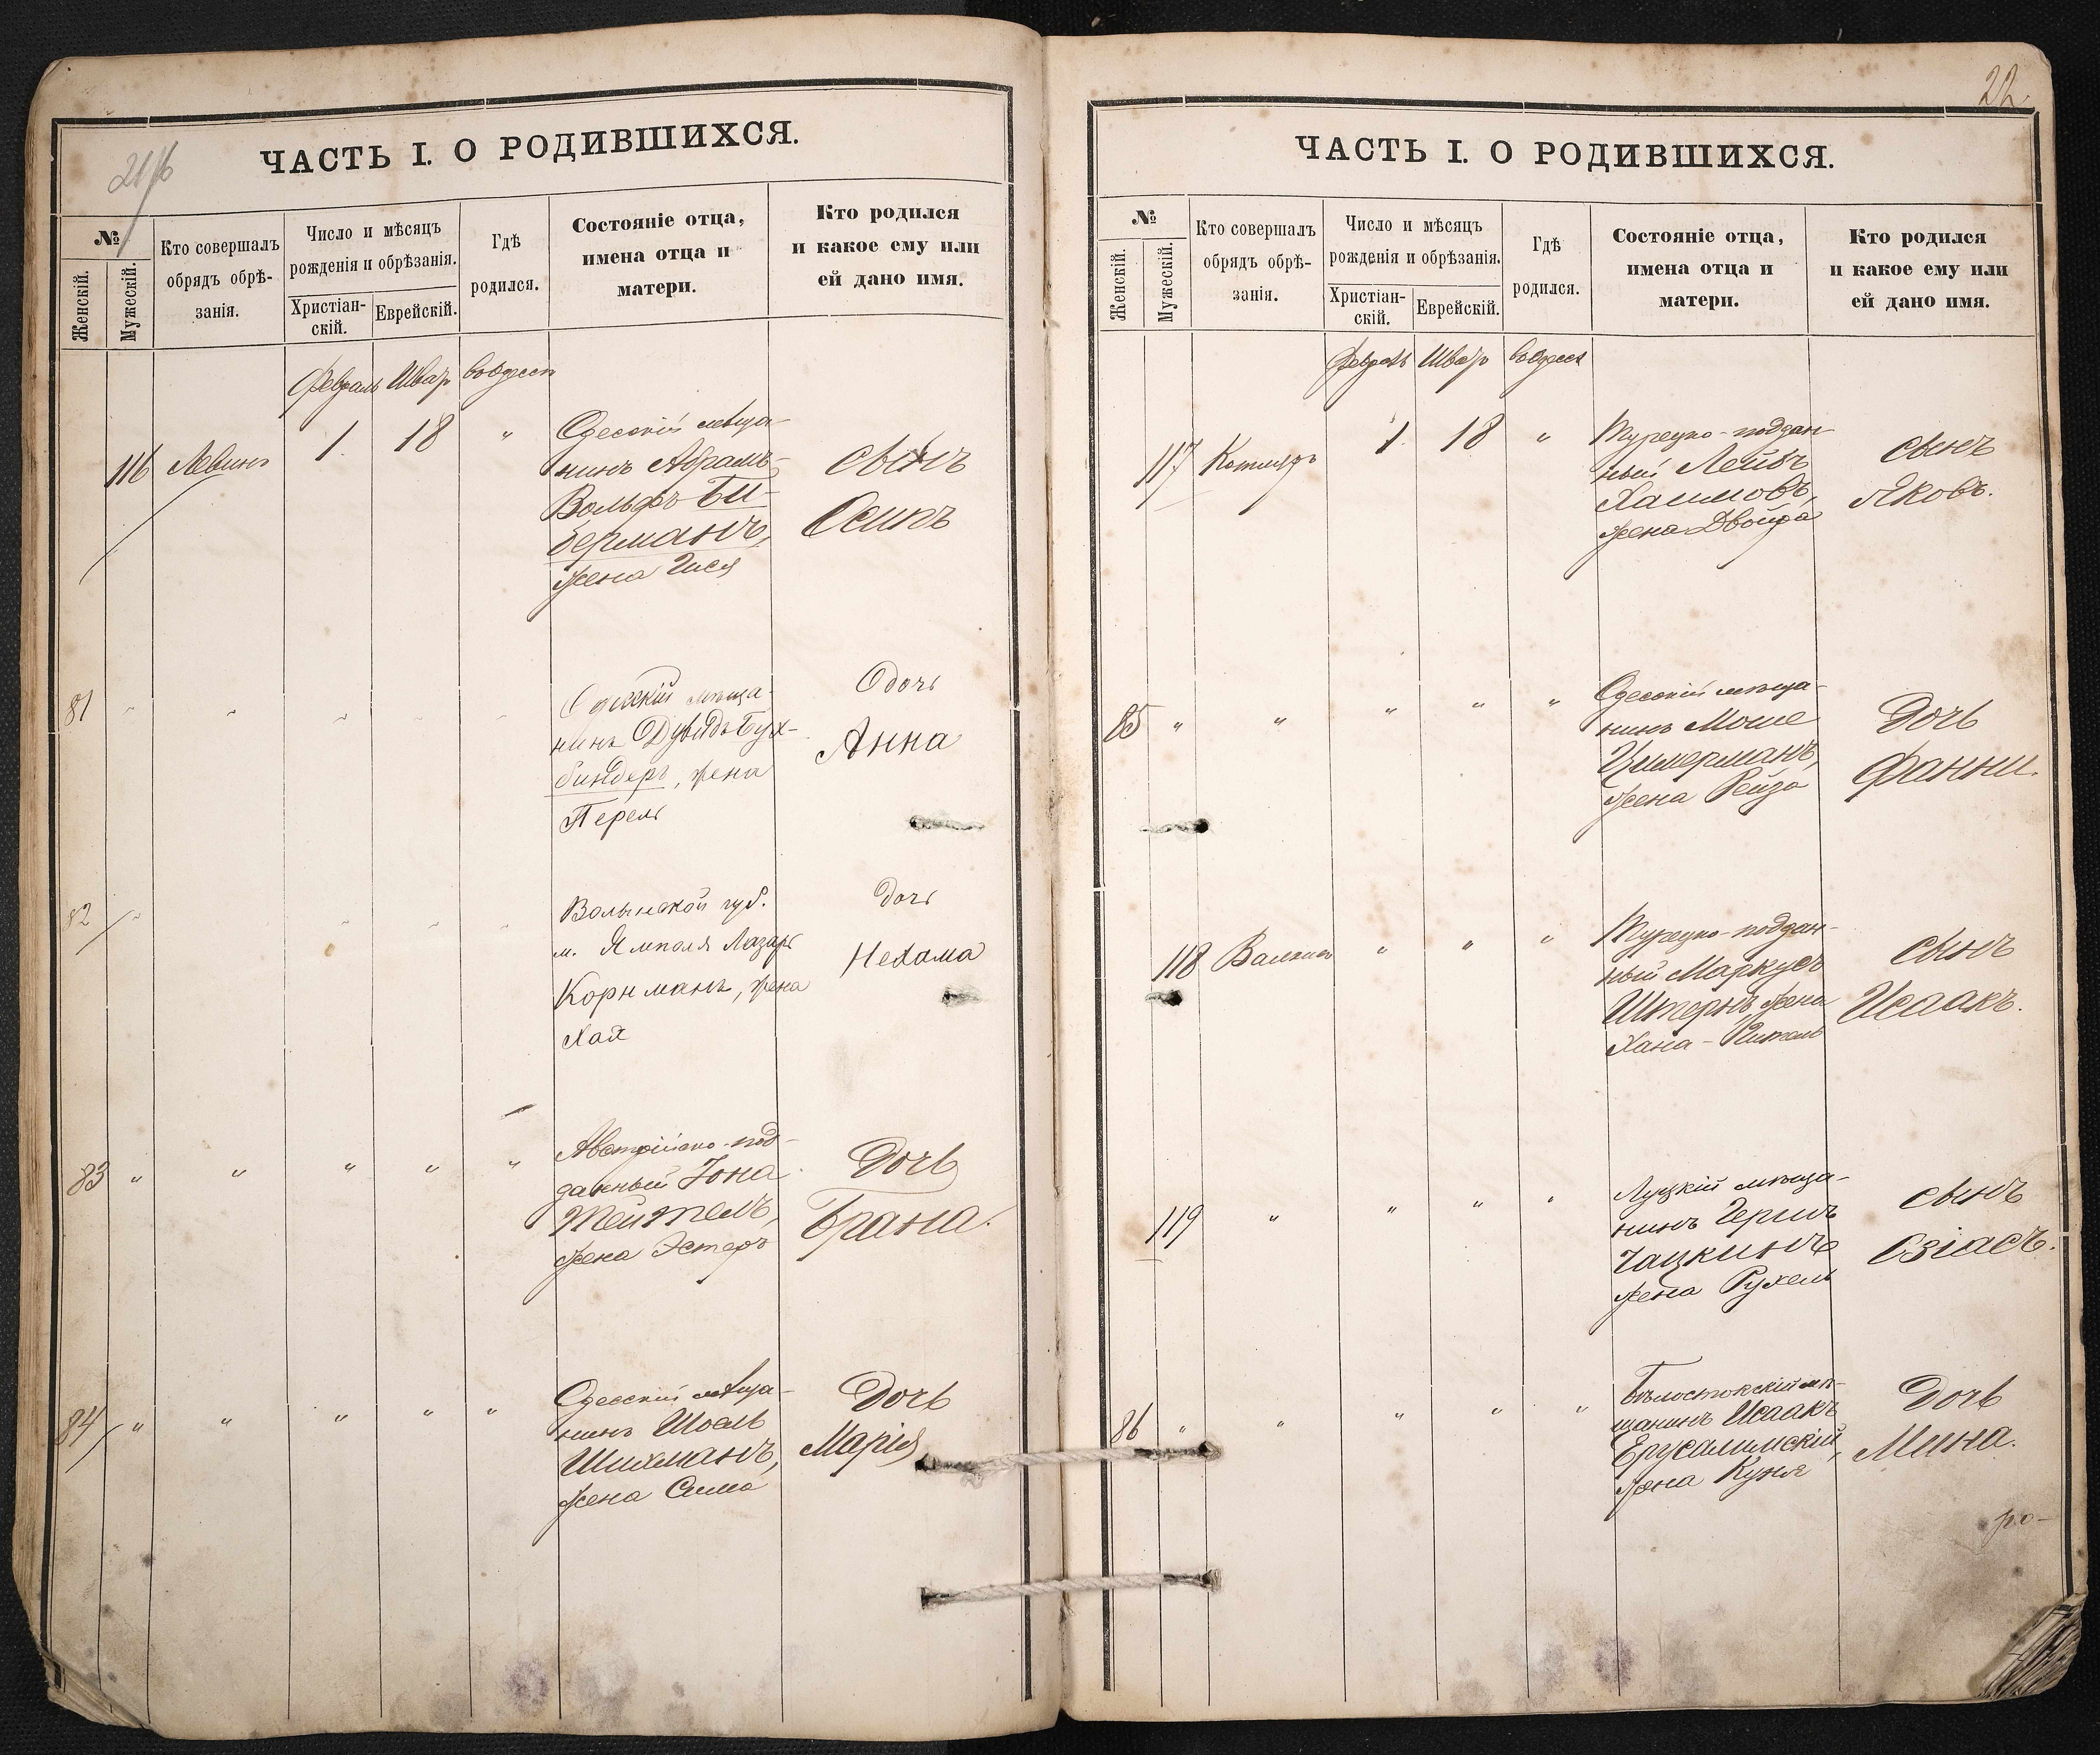 ЧАСТЬ I. О РОДИВШИХСЯ.
№
Женскій.
Мужескій.
Кто совершалъ
обрядъ обрѣ-
занія.
Число и мѣсяцъ
рожденія и обрѣзанія.
Христіан-
скій.
Еврейскій.
Гдѣ
родился.
Состояніе отца,
имена отца и
матери.
Кто родился
и какое ему или
ей дано имя.
Февраль Шват
116 Левинъ 1. 18 "
Одесскій мѣща-
нинъ Абрамъ-
Вольфъ Би-
берманъ,
жена Гися
сынъ
Осипъ
81
Одесскій мѣща-
нинъ Дувидъ Бух-
биндеръ, жена
Перель
Дочь
Анна
82
Волынской губ.
м. Ямполя Лазарь
Корнманъ, жена
Хая
дочь
Нехама
83 " " " " "
Австрійско-под-
данный Іона
Тейтель,
жена Эстеръ
Дочь
Брана.
84 " " " " "
Одесскій мѣща-
нинъ Шоель
Шихманъ,
жена Сима
Дочь
Марія
22.
ЧАСТЬ I. О РОДИВШИХСЯ.
№
Женскій.
Мужескій.
Кто совершалъ
обрядъ обрѣ-
занія.
Число и мѣсяцъ
рожденія и обрѣзанія.
Христіан-
скій.
Еврейскій.
Гдѣ
родился.
Состояніе отца,
имена отца и
матери.
Кто родился
и какое ему или
ей дано имя.
Шват
117 Котляръ 1. 18 "
Турецко-поддан-
ный Лейбъ
Хаимовъ,
жена Двойра
сынъ
Яковъ.
85 " " " " "
Одесскій мѣща-
нинъ Моше
Цимерманъ,
жена Рейза
Дочь
Фанни.
118 " " "
Турецко-поддан-
ный Маркусъ
Штернъ жена
Хана-
сынъ
Исаакъ.
119 " " " "
Луцкій мѣща-
нинъ Гершъ
Чацкинъ
жена Рухель
сынъ
Озіасъ.
86 " " " " "
Бѣлостокскій мѣ-
щанинъ Исаакъ
Ерусалимскій,
жена Куня
Дочь
Мина.
ро-